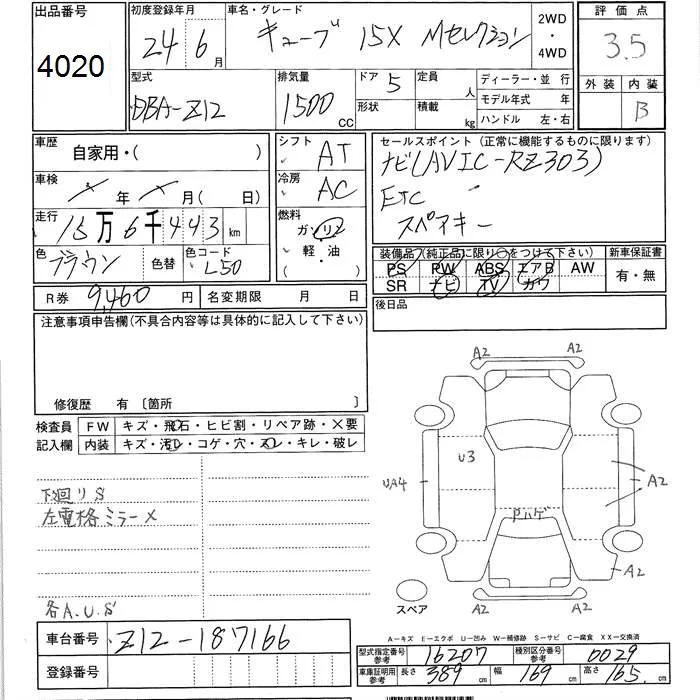 出品番号
4020
初度登録年月
24 6月
車名・グレード
キューブ 15X Mセレクション
2WD
・
4WD
評価点
3.5
外装 内装
B
型式
DBA-Z12
排気量
1500 CC
ドア
5
形状
定員
人
積載
kg
ディーラー・並行
モデル年式 年
ハンドル 左・右
車歴
自家用・( )
車検
年 月( 日)
走行
15万6千443km
色
ブラウン
色替
色コード
L50
シフト
AT
冷房
AC
燃料
ガソリン
軽・油
セールスポイント(正常に機能するものに限ります)
ナビ(AVIC-RZ303)
ETC
スペアキー
装備品(純正品に限り○をつけて下さい)
PS PW ABS エアB AW
SR ナビ TV カワ
新車保証書
有・無
R券 9,460円
名変期限 月 日
後日品
注意事項申告欄(不具合内容等は具体的に記入して下さい)
修復歴 有 〔箇所 〕
検査員
記入欄
FW キズ・飛石・ヒビ割・リペア跡・×要
内装 キズ・汚レ・コゲ・穴・スレ・キレ・破レ
下廻りS
左電格ミラー×
各A.U.S
A2 A2
U3
UA4
A2
Pハゲ
A2
A2 A2
スペア
A-キズ E-エクボ U-凹み W-補修跡 S-サビ C-腐食 XX-交換済
車台番号 Z12-187166
登録番号
型式指定番号
参考
16207
種別区分番号
参考
0029
車庫証明用
参考
長さ 389cm 幅 169cm 高さ 165cm